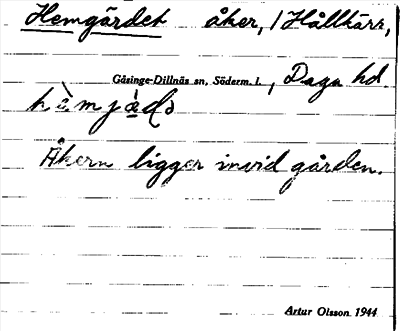 Hemgärdet åker, / Hållkärr,
Gåsinge-Dillnäs sn, Söderm. l., Daga hd
Åkern ligger invid gården.
Artur Olsson 1944